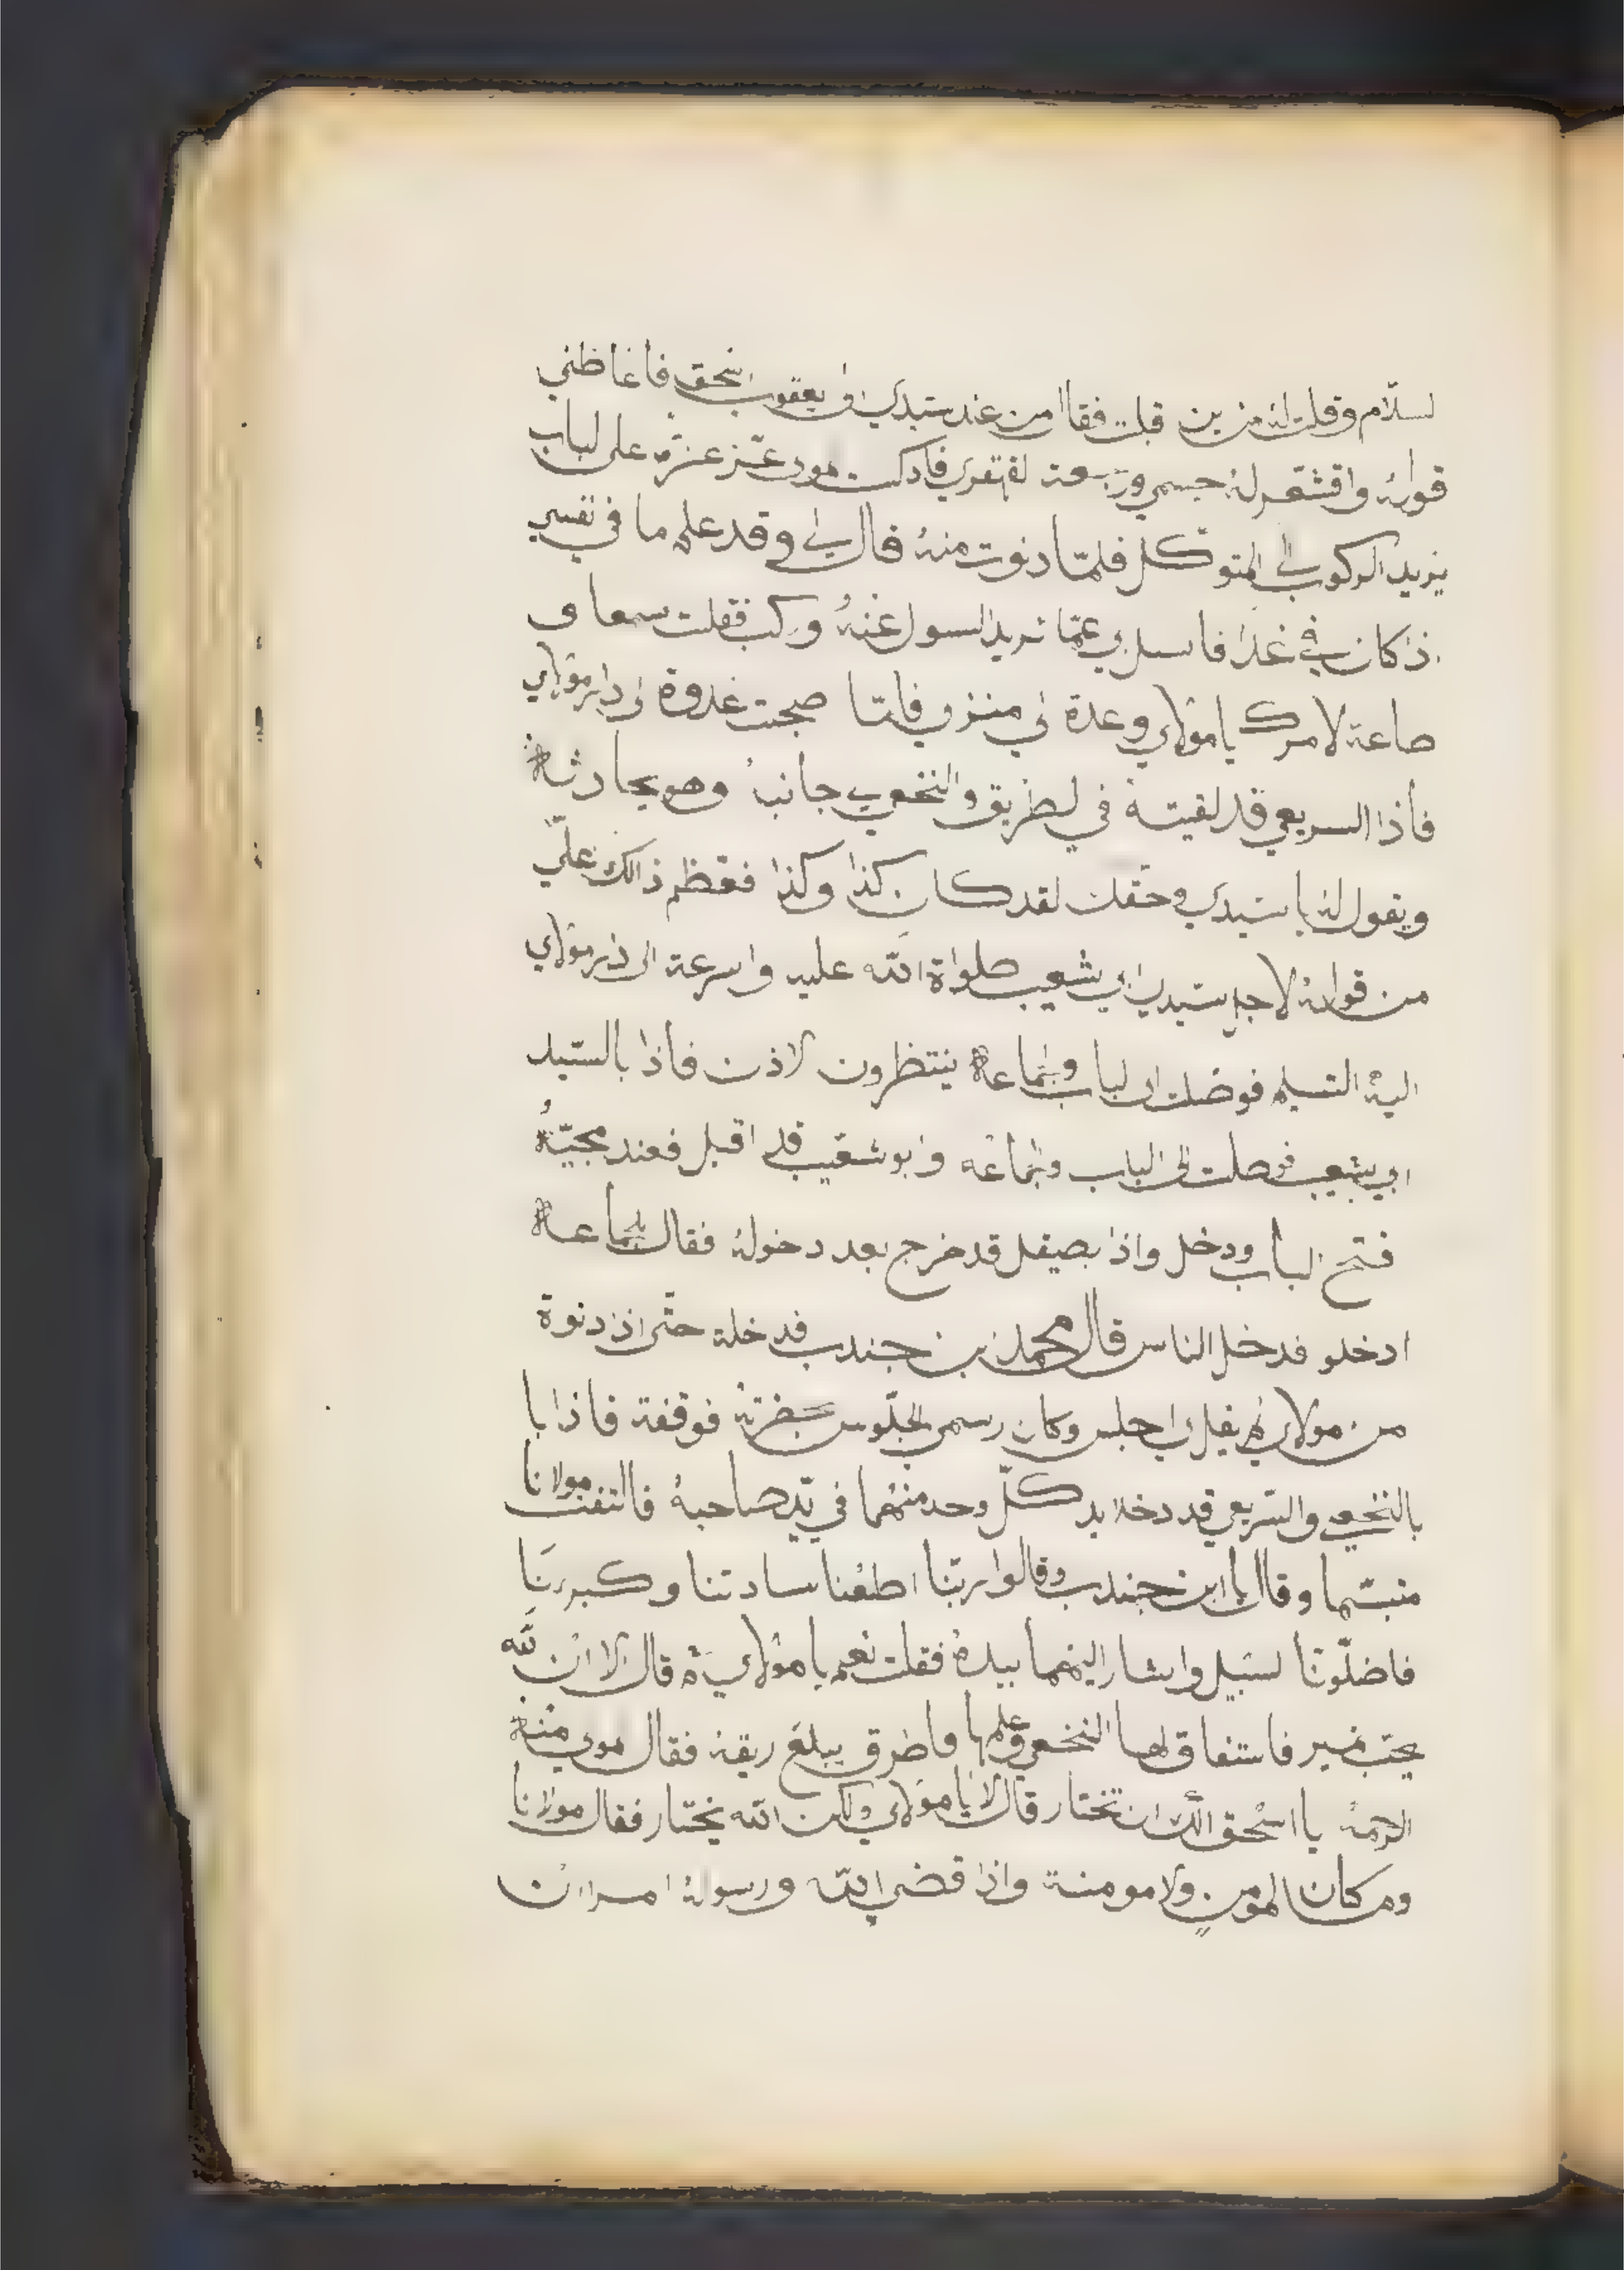 لسلام وقلت له من ين قبلت فقال من عند سيدي ابى يعقوب اسحق فاغاظني
قوله واقشعر له جسمي ورجعت لقهقرى فادركت مولى عز عزه على لباب
يريد الركوب الى المتوكل فلمّا دنوت منه قال لي وقد علم ما في نفسي
ذا كان في غدا فاسل بي عمّا تريد السول عنه وركب فقلت سمعا و
طاعة لامرك يا مولاي وعدة الى منزلي فلمّا صبحت غدوة الى دار مولاي
فأذا السريعي قد لقيته في لطريق والنخعي بي جانبه وهو يحادثه
ويقول له يا سيدي وحقك لقد كان كذا وكذا فعظم ذالك عليّ
من قوله لاجل سيدي ابي شعيب صلواة الله عليه واسرعة الى دار مولاي
اليه التسليم فوصلت الى لباب وجماعة ينتظرون لاذن فأذا بالسّيد
ابي شعيب فوصلت الى الباب وجماعه وابو شعيب قد اقبل فعند مجيّه
فتح الباب ودخل واذا بصيقل قد خرج بعد دخوله فقال للجماعة
ادخلو فدخل الناس قال محمد ابن جندب فدخلة حتّى اذا دنوة
من مولاي لم يقل لي اجلس وكان رسمي الجلّوس بحضرته فوقفة فاذا با
بالنخعي والسّريعي قد دخلا يد كلّ وحد منهما في يّد صاحبه فالتفت مولانا
متبسّما وقال يا ابن جندب وقالوا ربّنا اطعنا سادتنا وكبررنا
فاضلّونا لسبيل واشار اليهما بيده فقلت نعم يا مولاي قال الا ان لله
يحبّ نصير فاستفاق لها النخعي وعلمها واطرق يبلغ ريقه فقال مولى منه
الرحمة يا اسحق الك ان تختار قال لا يا مولاي ولكن الله يختار فقال مولانا
وم كان لمومن ولا مومنة واذا قضى الله ورسوله امرا ان